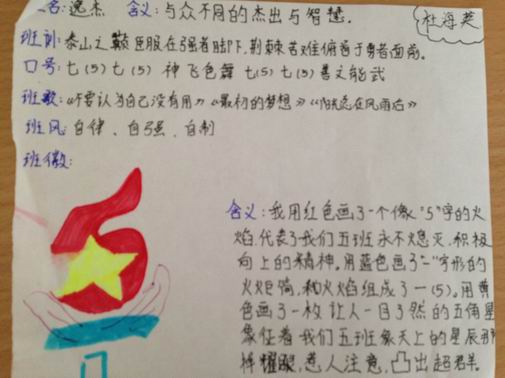 名：逸杰 含义：与众不同的杰出与智慧.
杜海英
班训：泰山之巅臣服在强者脚下,荆棘苦难俯首于勇者面前。
口号：七(5)七(5) 神飞色舞 七(5)七(5)善文能武
班歌：《不要认为自己没有用》《最初的梦想》《阳光总在风雨后》
班风：自律、自强、自制
班徽：
含义：我用红色画了一个像"5"字的火
焰.代表了我们五班永不熄灭,积极
向上的精神。用蓝色画了"一"字形的
火炬筒,和火焰组成了一(5)。用黄
色画了一枚让人一目了然的五角星
象征着我们五班象天上的星辰那
样耀眼,惹人注意,凸出超群。